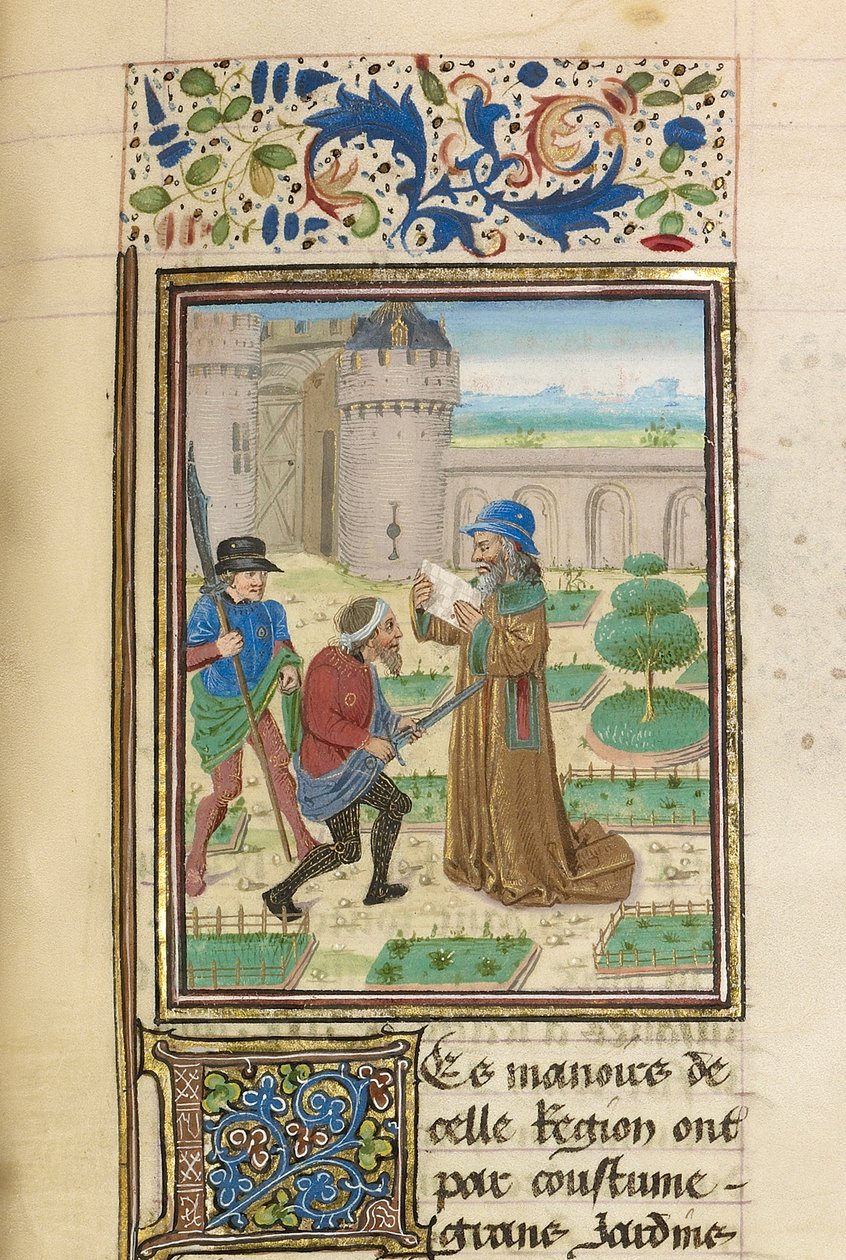 LEs manoirs de
celle Region ont
par coustume -
grans Jardins